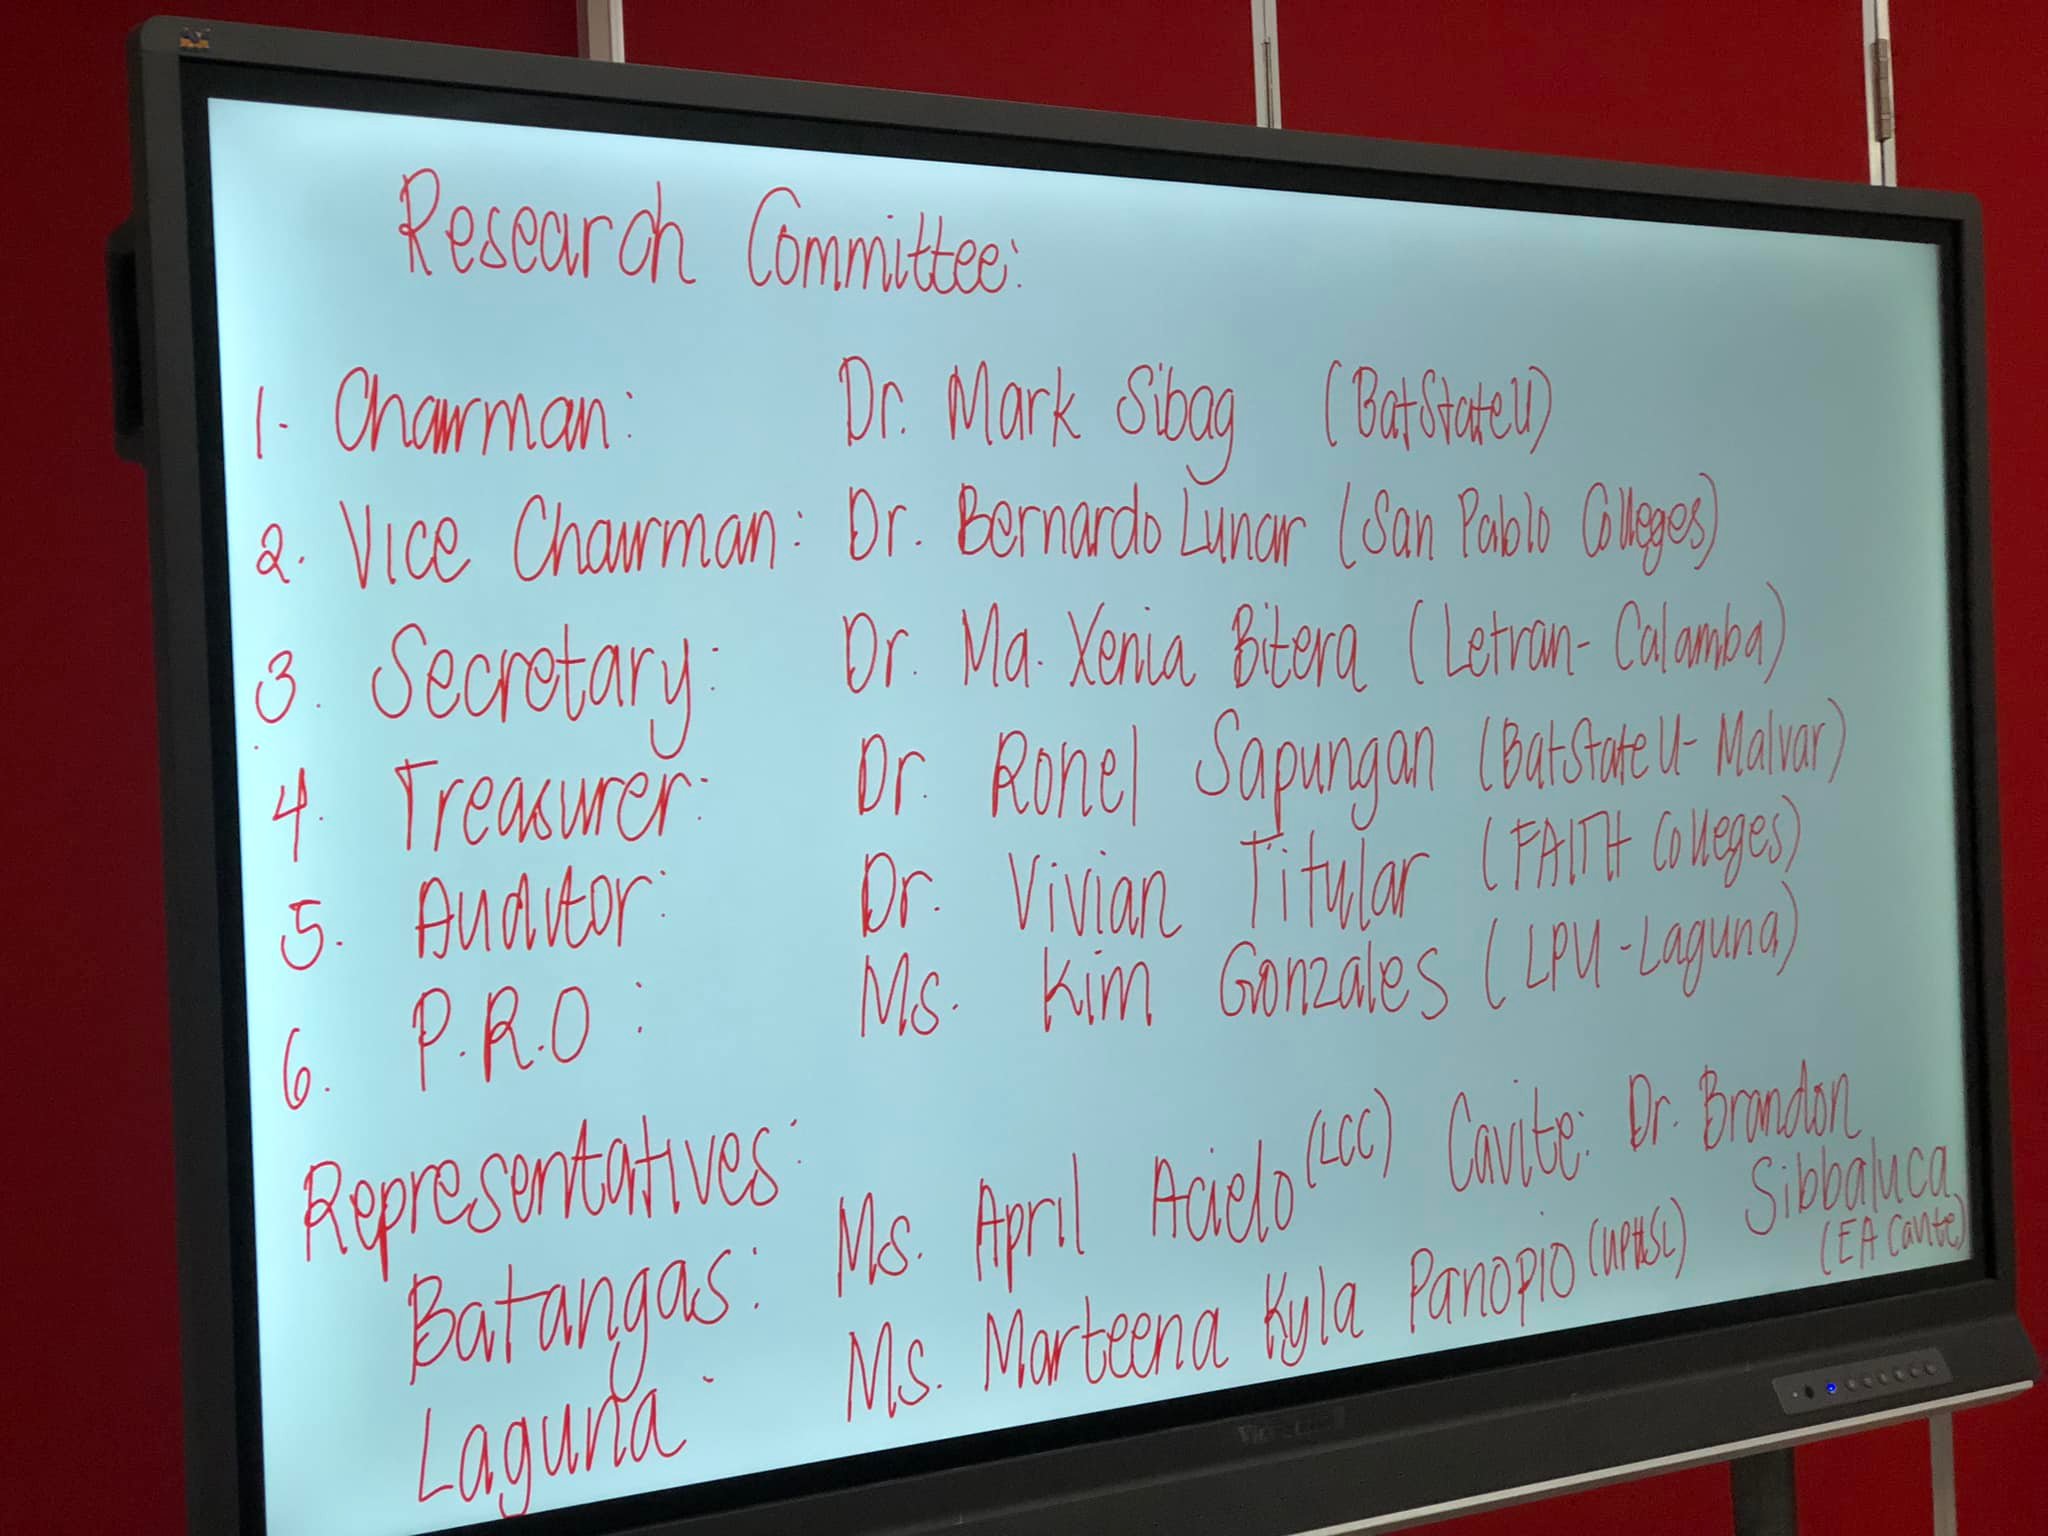 Research Committee:
1. Chairman: Dr. Mark Sibag (BatStateU)
2. Vice Chairman: Dr. Bernardo Lunar (San Pablo Colleges)
3. Secretary: Dr. Ma. Xenia Bitera (Letran-Calamba)
4. Treasurer: Dr. Ronel Sapungan (BatStateU-Malvar)
5. Auditor: Dr. Vivian Titular (FAITH Colleges)
6. P.R.O: Ms. Kim Gonzales (LPU-Laguna)
Representatives:
Batangas: Ms. April Acielo (LCC)
Laguna: Ms. Marteena Kyla Panopio (UPHSL)
Cavite: Dr. Brandon
Sibbaluca
(EA Cavite)